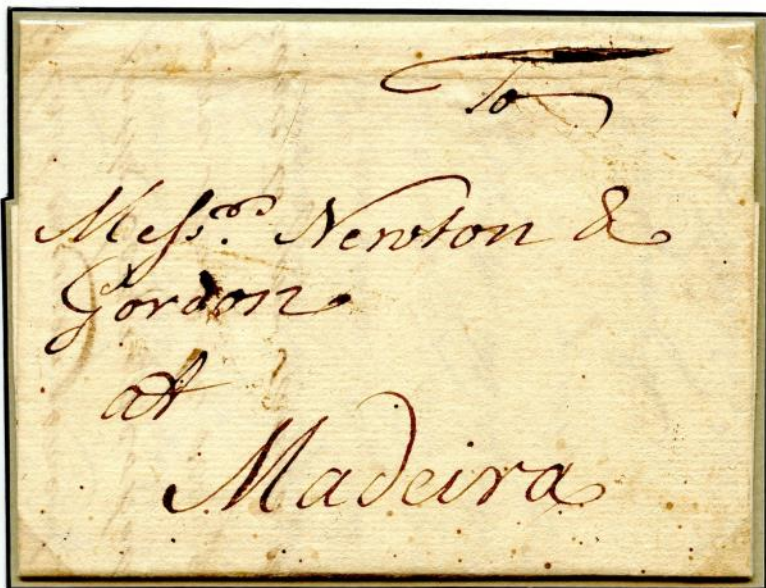 To
Messrs. Newton &
Gordon
at
Madeira